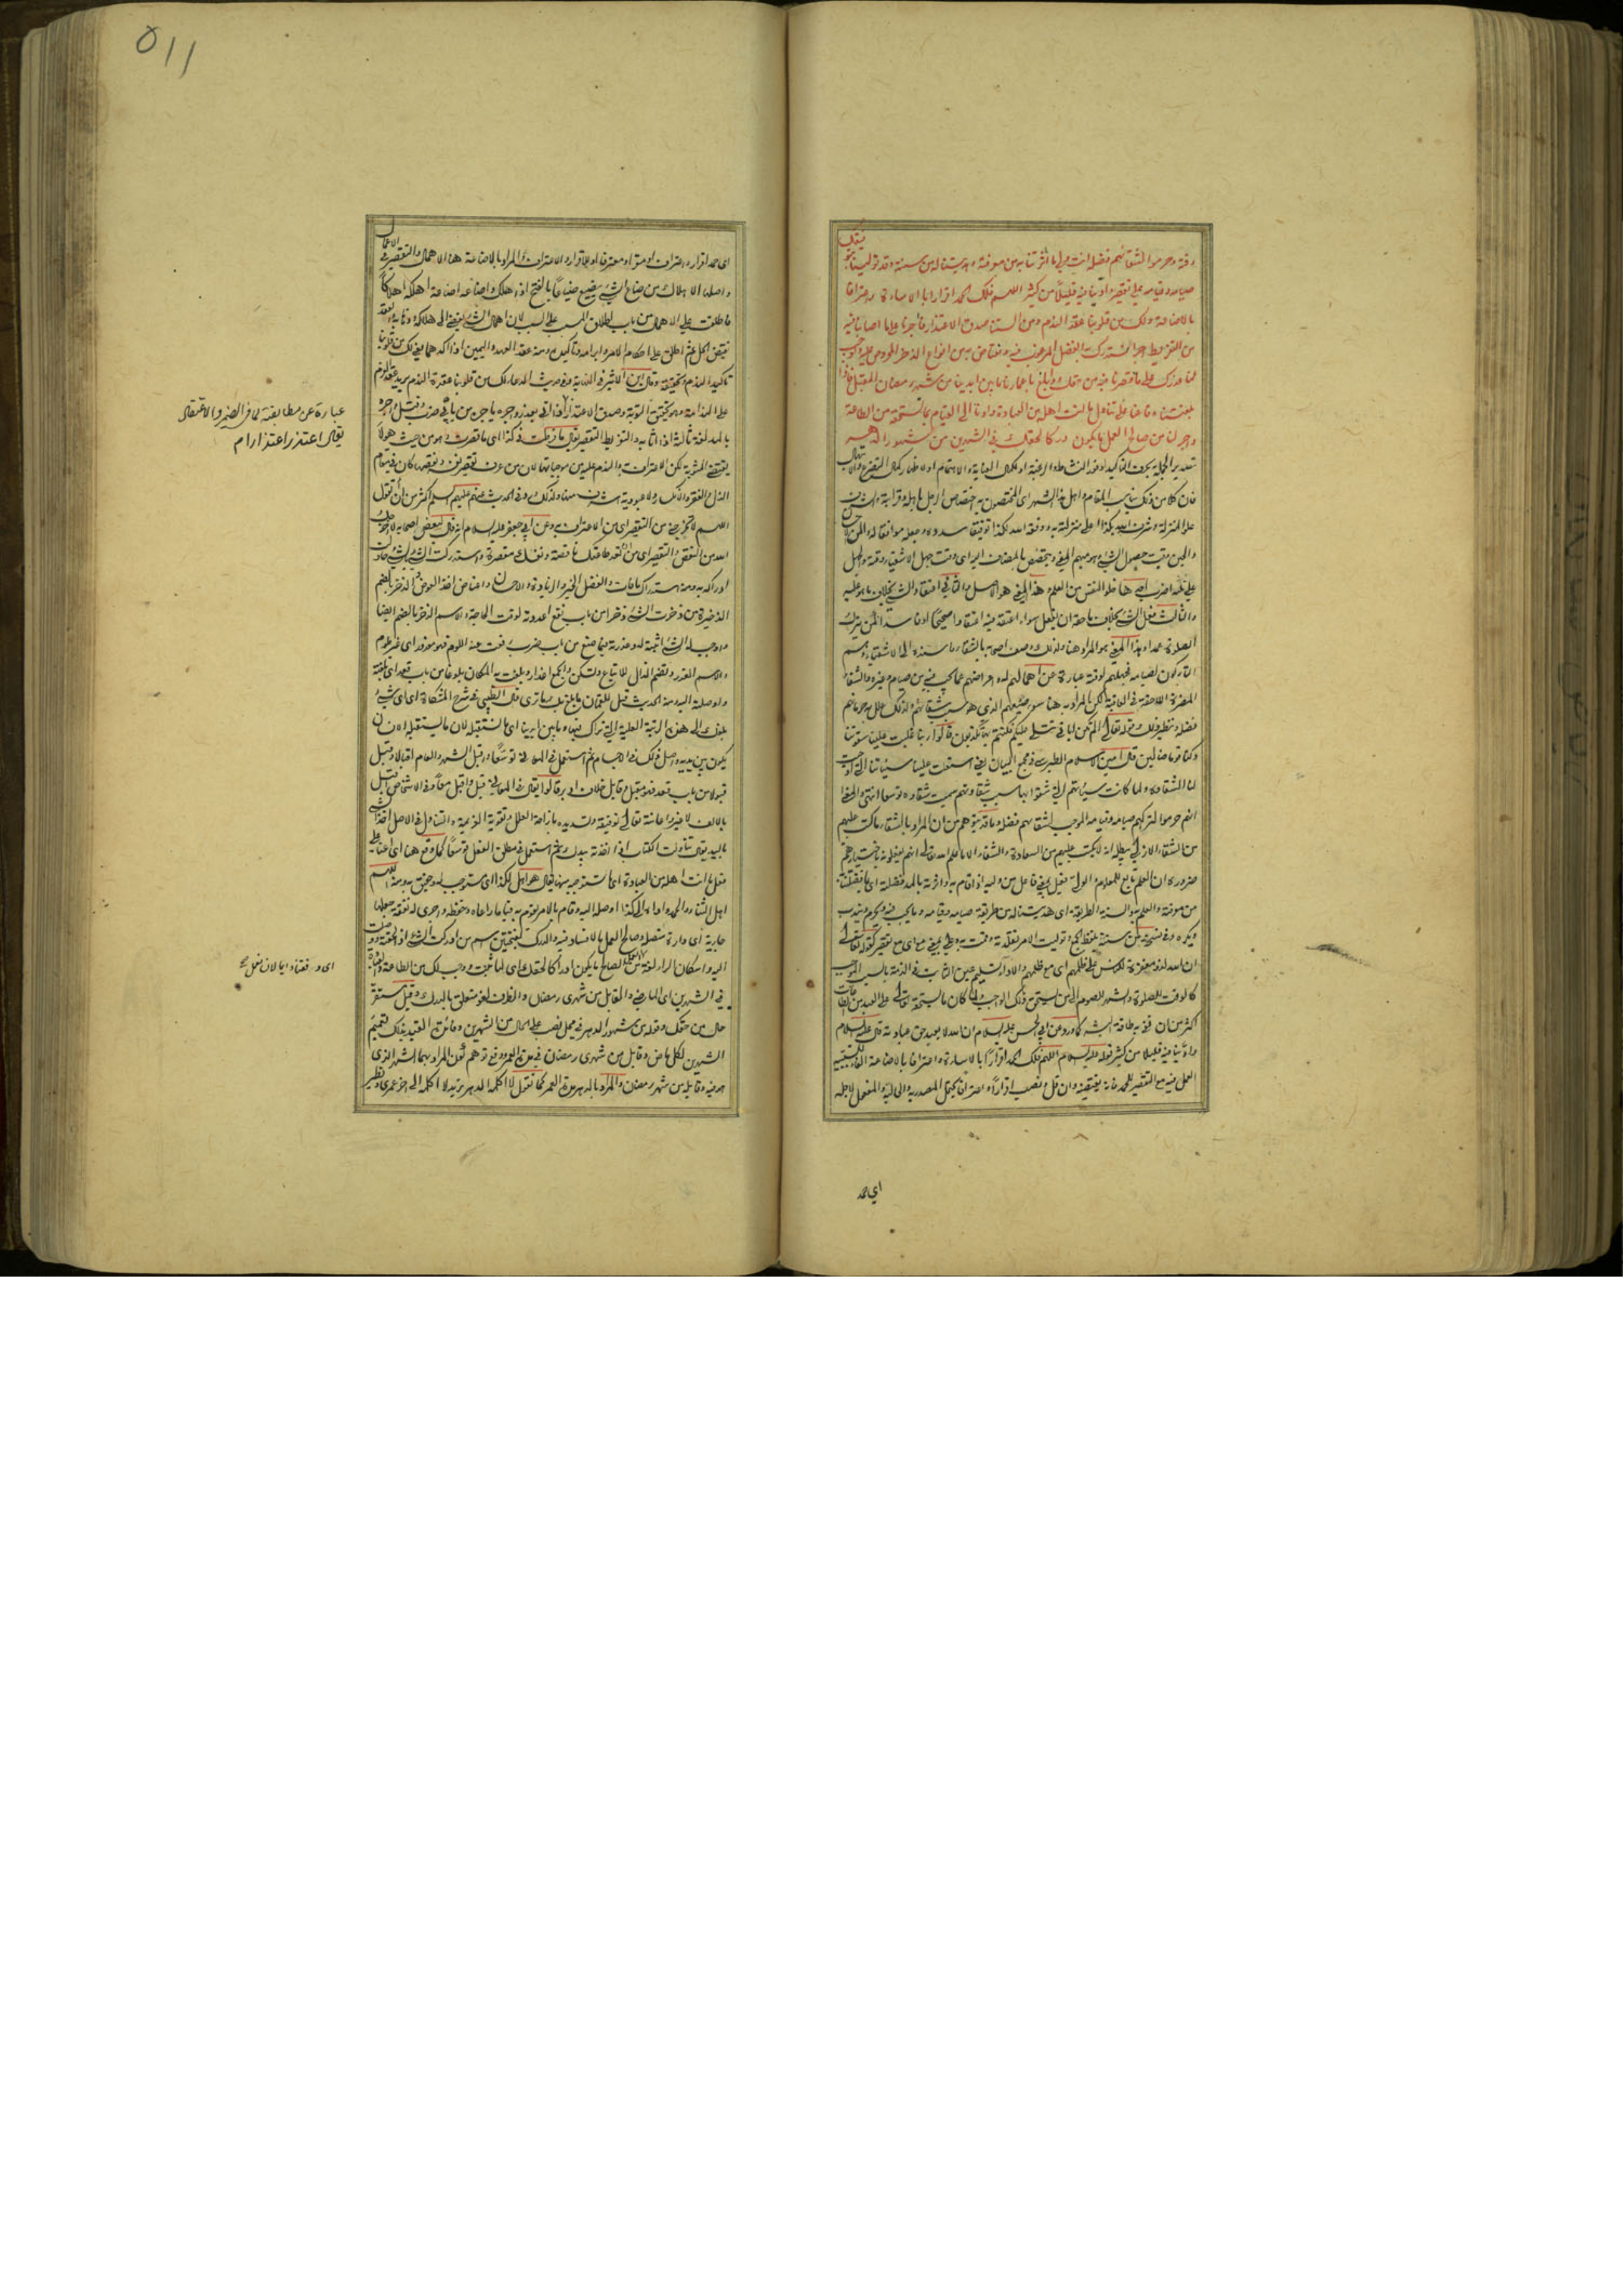 وقته وحرموا لشقائهم فضله انت ولي ما اثرتنا به من معرفته وهديتنا له من سنته وقد تولينا بتوفيقك
صيامه وقيامه على تقصير وادينا فيه قليلاً من كثير اللهم فلك الحمد اقرارا بالاساءة واعترافا
بالاضاعة ولك من قلوبنا عقد الندم ومن السنتنا صدق الاعتذار فأجرنا على ما اصابنا فيه
من التفريط اجرا نستدرك به الفضل المرغوب فيه ونعتاض به من انواع الذخر المحروص عليه واوجب
لنا عذرك على ما قصرنا فيه من حقك وابلغ باعمارنا ما بين ايدينا من شهر رمضان المقبل فاذا
بلغتناه فاعنا على تناول ما انت اهله من العبادة وادنا الى القيام بما تستحقه من الطاعة
واجر لنا من صالح العمل ما يكون دركا لحقك في الشهرين من شهور الدهر
تصدير الجملة بحرف التاكيد لوفور النشاط والرغبة او كمال العناية والاهتمام او لاظهار كمال التضرع والابتهال
فان كلا من ذلك يناسب المقام واهل هذا الشهر اى المختصون به اختصاص الرجل باهله وقرابته والشرف
علو المنزلة وشرف الله بكذا اعلى منزلته به ووفقه الله لكذا توفيقا سدده وجعله موافقا له والمن
والحين وقت حصول الشئ وهو مبهم المعنى ويتخصص بالمضاف اليه اى وقت جهل الاشقياء وقته والجهل
على ثلثه اضرب احدها خلو النفس من العلم وهذا المعنى هو الاصل والثاني اعتقاد الشئ بخلاف ما هو عليه
والثالث فعل الشئ بخلاف ما حقه ان يفعل سواء اعتقد فيه اعتقادا صحيحا او فاسدا كمن يترك
الصلوة عمدا وهذا المعنى هو المراد هنا ولذلك وصف اصحابه بالشقاء واسنده الى الاشقياء وهم
التاركون لصيامه فجهلهم لوقته عبارة عن اهمالهم له واعراضهم عما يجب فيه من صيام وغيره والشقاء
المضرة اللاحقة في العاقبة لكن المراد به هنا سوء صنيعهم الذي هو سبب شقائهم ولذلك علل به حرمانهم
فضله ونظير ذلك قوله تعالى الم تكن اياتي تتلى عليكم فكنتم بها تكذبون قالوا ربنا غلبت علينا شقوتنا
وكنا قوما ضالين قال امين الاسلام الطبرسى في مجمع البيان اي استعلت علينا سيئاتنا التي اوجبت
لنا الشقاوة ولما كانت سيئاتهم التي شقوا بها سبب شقاوتهم سميت شقاوة توسعا انتهى والمعنى
انهم حرموا لتركهم صيامه وقيامه الموجب لشقائهم فضله وما قد يتوهم من ان المراد بالشقاء ما كتب عليهم
من الشقاء الازلي يبطله انه لا يكتب عليهم من السعادة والشقاء الا ما علم الله تعالى انهم يفعلونه باختيارهم
ضرورة ان العلم تابع للمعلوم والولي فعيل بمعنى فاعل من وليه اذا قام به واثرته بالمد فضلته اى ما فضلتنا به
من معرفته والعلم به والسنة الطريقة اى هديتنا له من طريقة صيامه وقيامه وما يجب فيه ويحرم ويندب
ويكره وفى نسخة من سننه بلفظ الجمع وتوليت الامر تقلدته وقمت به وعلى بمعنى مع اى مع تقصير كقوله تعالى
ان الله لذو مغفرة للناس على ظلمهم اى مع ظلمهم والاداء تسليم عين الثابت في الذمة بالسبب الموجب
كالوقت للصلوة والشهر للصوم الى من يستحق ذلك الواجب ولما كان ما يستحقه تعالى على العبد من الطاعات
اكثر من ان تفى به طاقة البشر كما ورد عن ابي الحسن عليه السلام ان الله لا يعبد حق عبادته قال عليه السلام
وادينا فيه قليلا من كثير قوله عليه السلام اللهم فلك الحمد اقرارًا بالاساءة واعترافا بالاضاعة الفاء للسببية
العمل فيه مع التقصير للحمد فانه يقتضيه وان قل ونصب اقرارًا واعترافا يحتمل المصدرية والحالية والمفعول لاجله
اي حمد
٥١١
اى حمد اقرار واعتراف او مقرا ومعترفا او للاقرار والاعتراف والمراد بالاضاعة هنا الاهمال والتقصير في الاعمال
واصلها الاهلاك من ضاع الشئ يضيع ضياعًا بالفتح اذا هلك واضاعه اضاعة اهلكه اهلاكًا
فاطلقت على الاهمال من باب اطلاق المسبب على السبب لان اهمال الشئ يفضى الى هلاكه وفنائه والعقد
نقيض الحل ثم اطلق على احكام الامر وابرامه وتاكيده ومنه عقد العهد واليمين اذا اكدهما فعنى لك من قلوبنا
تاكيد الندم وتحقيقه وقال ابن الاثير في النهاية وفي حديث الدعاء لك من قلوبنا عقدة الندم يريد عقد العزم
على الندامة وهو تحقيق التوبة وصدق الاعتذار
بالمد لغة ثالثة اذا اثابه والتفريط التقصير يقال ما فرطت في كذا اى ما قصرت
اللهم لا تخرجني من التقصير اى من الاعتراف به وعن ابي جعفر عليه السلام انه قال لبعض اصحابه
الله من النقص والتقصير اى من ان تعد طاعتك ناقصة ونفسك مقصرة واستدركت الشئ بالشئ حاولت
ادراكه به ومنه استدراك ما فات والفضل الخير والزيادة والاحسان واعتاض اخذ العوض والذخر بالضم
الذخيرة من ذخرت الشئ ذخرا من باب نفع اعددته لوقت الحاجة والاسم الذخر بالضم ايضا
واوجب له الشئ اثبته له وعذرته فيما صنع من باب ضرب رفعت عنه اللوم فهو معذور اى غير ملوم
والاسم العذر وتضم الذال للاتباع وتسكن والجمع اعذار وبلغت به المكان بلوغا من باب قعد اى بلغته
واوصلته اليه ومنه الحديث قيل للقمان ما بلغ بك ما ترى قال الطيبى في شرح المشكاة اى اى شئ
بلغك الى هذه الرتبة العلية التي نراك فيها وما بين ايدينا اى ما نستقبله لان ما يستقبله الانسان
يكون بين يديه واصل ذلك في الاجسام ثم استعمل في المعاني توسعًا واقبل الشهر والعام اقبالا وقبل
قبولا من باب قعد فهو مقبل وقابل خلاف ادبر قالوا يقال في المعاني قبل واقبل معًا وفي الاشخاص اقبل
بالالف لا غير واعانته تعالى توفيقه وتسديده بازاحة العلل وتقوية العزيمة والتناول في الاصل اخذ الشئ
باليد يقال تناولت الكتاب اذا اخذته بيدك ثم استعمل في مطلق الفعل توسعًا كما وقع هنا اى اعنا على
فعل ما انت اهله من العبادة اى ما تستوجبه منها يقال هو اهل لكذا اى مستوجب له وحقيق به ومنه اللهم
اهل الثناء والحمد واداه الى كذا اوصله اليه وقام بالامر يقوم به قياما راعاه وحفظه واجرى له نفقة جعلها
جارية اى دارة متصلة وصالح العمل ما لا فساد فيه والدرك بفتحتين اسم من ادركت الشئ
اليه واسكان الراء لغة من العمل الصالح ما يكون ادراكا لحقك اى لما ثبت ووجب لك من الطاعة
في الشهرين اى الماضي والمقابل من شهرى رمضان والظرف لغو متعلق بالدرك وقيل مستقر
حال من حقك وقوله من شهور الدهر في محل نصب على الحال من الشهرين وفائدة التقييد بذلك تعميم
الشهرين لكل ماض وقابل من شهرى رمضان في مدة العمر ودفع توهم كون المراد بهما الشهر الذى
هو فيه وقابله من شهر رمضان والمراد بالدهر مدة العمر كما تقول لا اكلمه الدهر تريد لا اكلمه الى اخر عمرى ونظير
عبارة عن مطابقته لما فى الضمير والاعتقاد
يقال اعتذر اعتذارا م